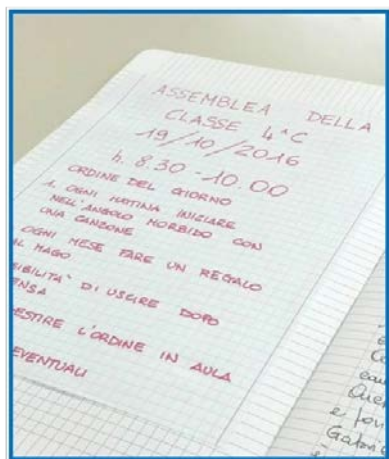 ASSEMBLEA DELLA
CLASSE 4^C
19/10/2016
h. 8.30-10.00
ORDINE DEL GIORNO
1. OGNI MATTINA INIZIARE
NELL'ANGOLO MORBIDO CON
UNA CANZONE
OGNI MESE FARE UN REGALO
AL MAGO
SIBILITA' DI USCIRE DOPO
ENSA
ESTIRE L'ORDINE IN AULA
EVENTUALI